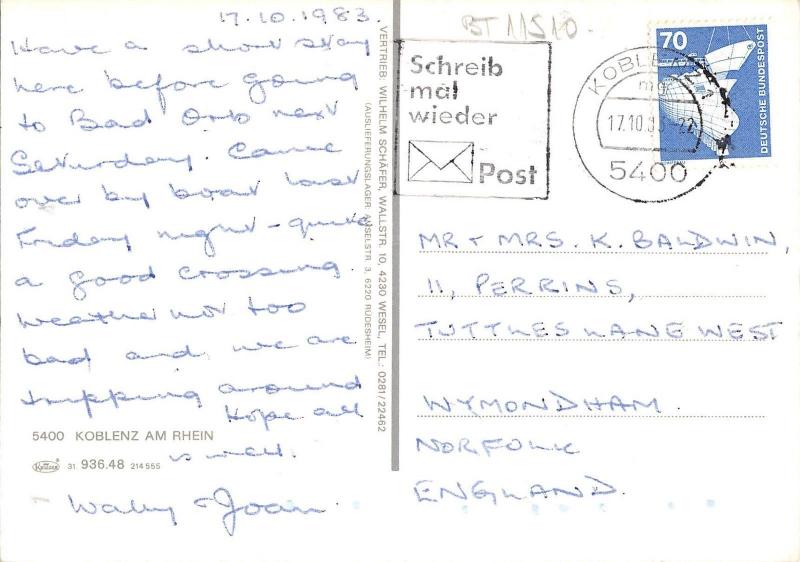 17.10.1983.
Have a short stay
here before going
to Bad Orb next
Saturday. Came
over by boat last
Friday night - quite
a good crossing.
Weather not too
bad and we are
tripping around
Hope all
is well.
Wally & Joan.
5400 KOBLENZ AM RHEIN
31 936.48 214 555
VERTRIEB: WILHELM SCHÄFER, WALLSTR. 10, 4230 WESEL, TEL.: 0281/22462
(AUSLIEFERUNGSLAGER AMSELSTR 3, 6220 RÜDESHEIM)
BT 11510
Schreib
mal
wieder
Post
KOBLENZ 1
17.10.83-22
5400
70
DEUTSCHE BUNDESPOST
MR + MRS. K. BALDWIN,
11, PERRINS,
TUTTLES LANE WEST
WYMONDHAM.
NORFOLK
ENGLAND.